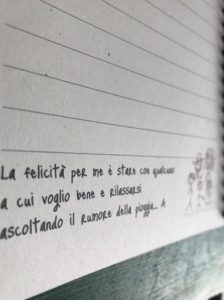 La felicità per me è stare con qualcuno
a cui voglio bene e rilassarsi
ascoltando il rumore della pioggia... A.